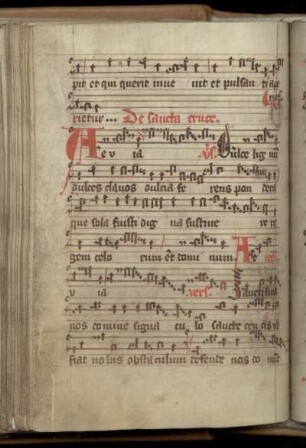 pit et qui querit inue nit et pulsan ti ape
rietur... De sancta cruce.
Ae v ia V̄s. Dulce lig nū
dulces clauos dulcia fe rens pon dera
que sola fuisti dig na sustine re re
gem celo rum et domi num Ae
v ia vers.
nos domine signa cu lo sancte crucis
fiat nobis obstaculum defende nos